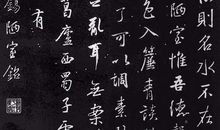 則名水不在
陋室惟吾德
色入簾青談
可以調素
亂耳無案
葛廬西蜀子雲
有
錫陋室銘